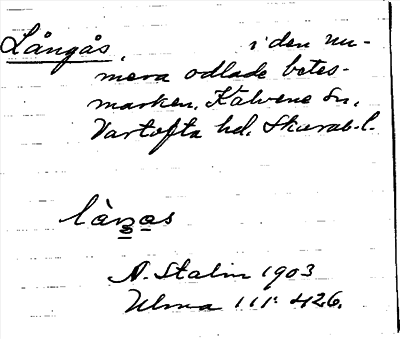 Långås, i den nu-
mera odlade betes-
marken. Kälvene sn.
Vartofta hd. Skarab. l.
làŋas
N. Stalin 1903
Ulma 111:426.